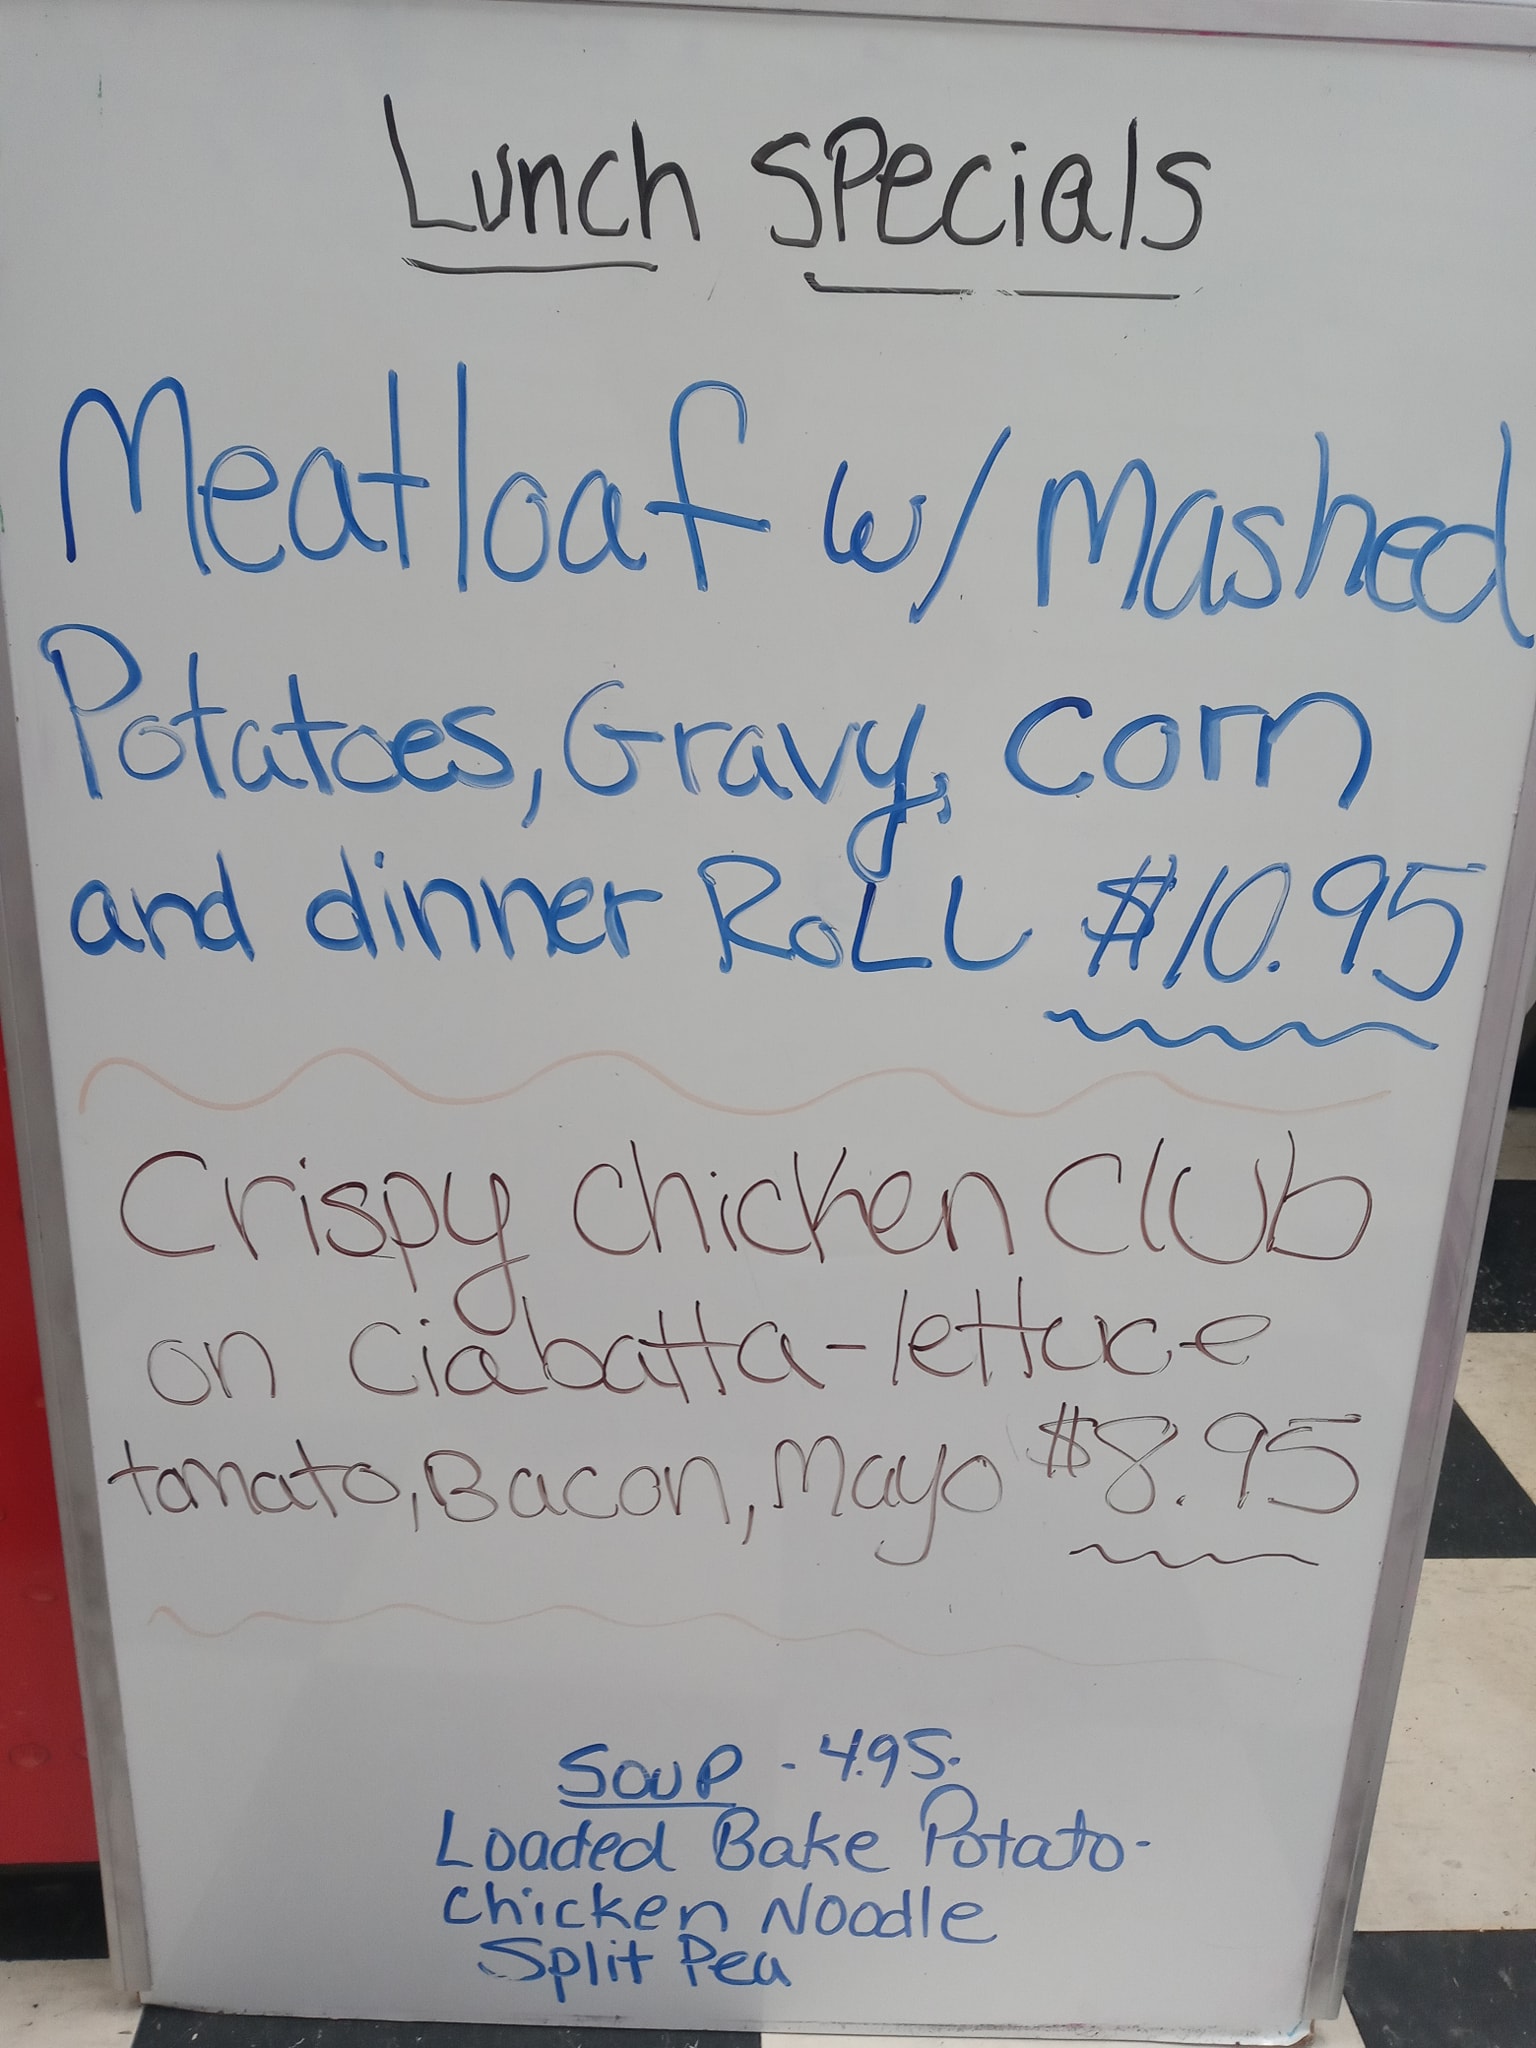 Lunch Specials
Meatloaf w/ Mashed
Potatoes, Gravy, corn
and dinner RoLL $10.95
Crispy Chicken Club
on ciabatta-lettuce
tomato, Bacon, Mayo $8.95
Soup - 4.95.
Loaded Bake Potato-
Chicken Noodle
Split Pea